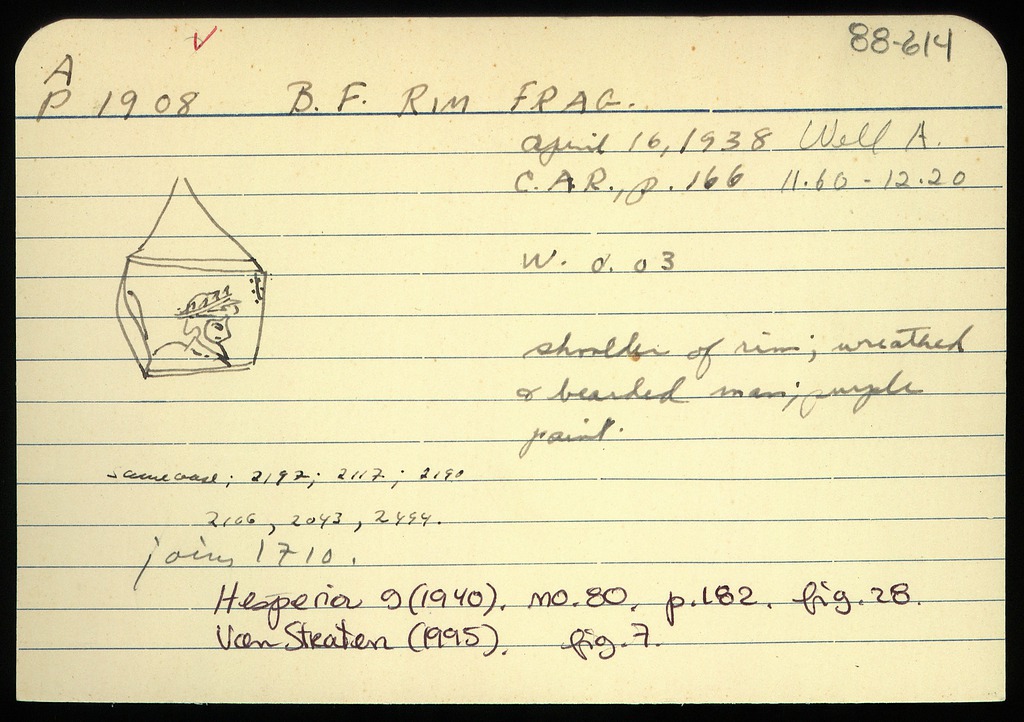 88-614
A
P 1908 B. F. RIM FRAG.
April 16, 1938 Well A.
C.A.R., p. 166 11.60 - 12.20
W. 0.03
shoulder of rim; wreathed
& bearded man; purple
paint.
same vase; 2197; 2117; 2190
2106, 2043, 2494.
joins 1710.
Hesperia 9 (1940). no. 80. p. 182. fig. 28.
Van Straten (1995). fig. 7.